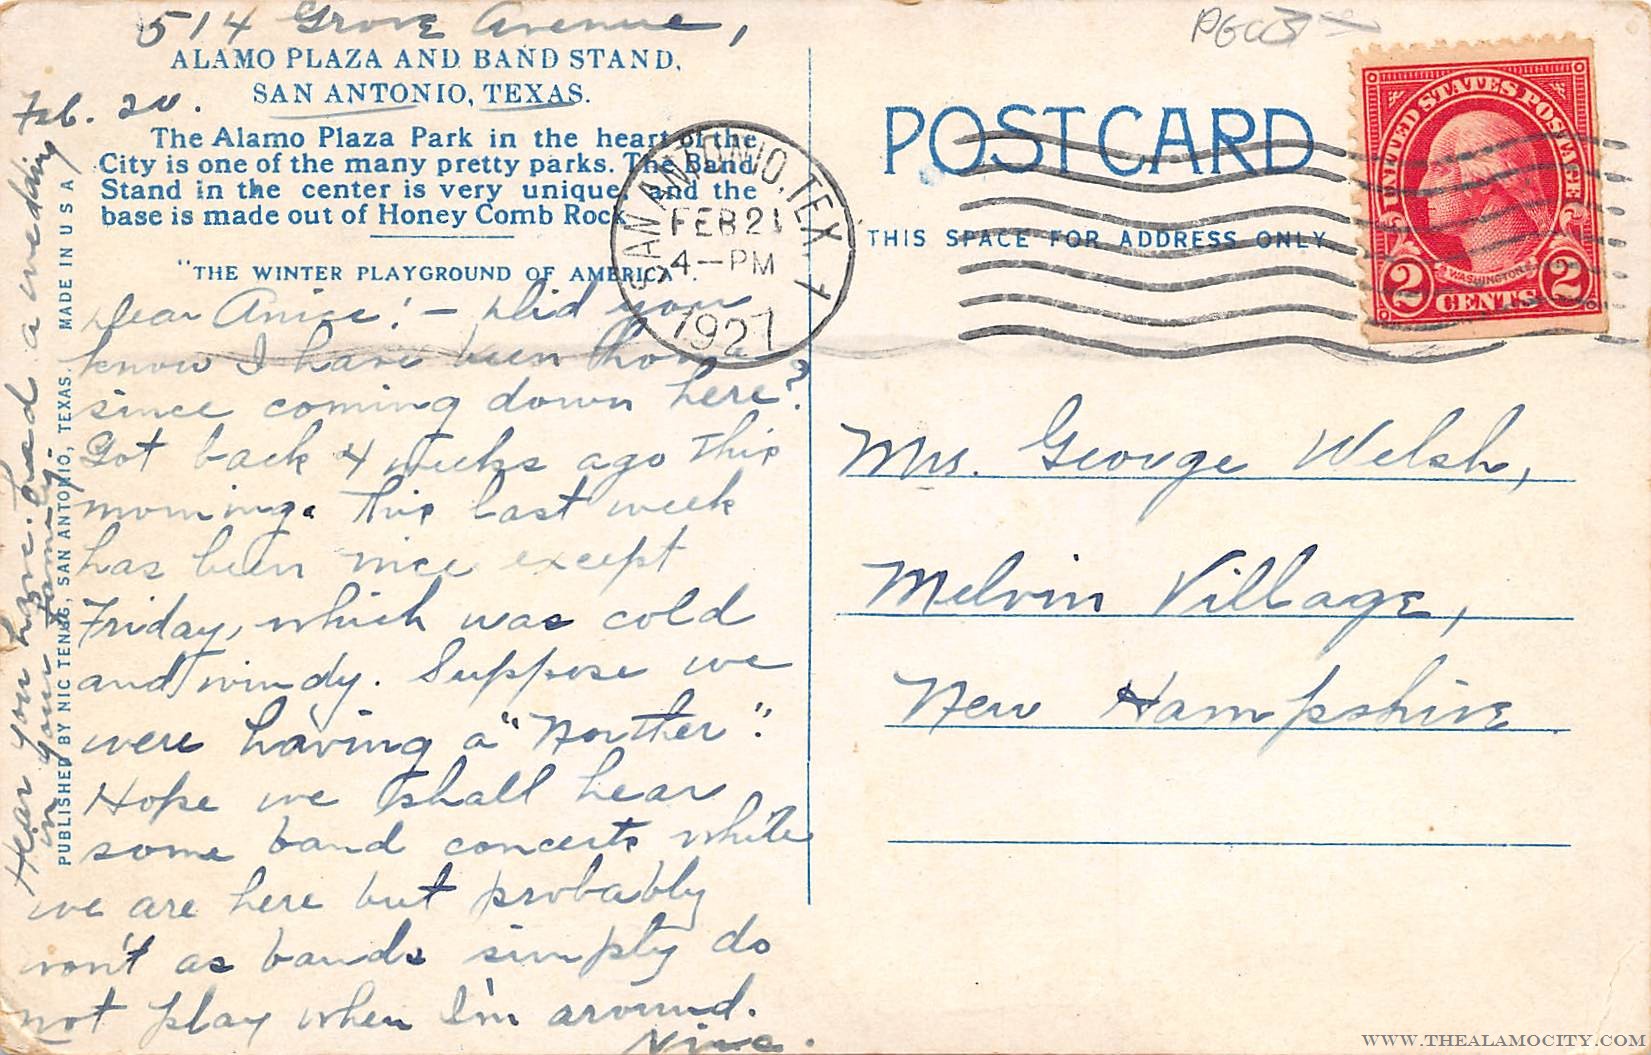 514 Grove Avenue,
ALAMO PLAZA AND BAND STAND,
SAN ANTONIO, TEXAS.
Feb. 20.
The Alamo Plaza Park in the heart of the
City is one of the many pretty parks. The Band
Stand in the center is very unique and the
base is made out of Honey Comb Rock
"THE WINTER PLAYGROUND OF AMERICA".
Dear Anice! - Did you
know I have been home
since coming down here?
Got back 4 weeks ago this
morning. This last week
has been nice except
Friday, which was cold
and windy. Suppose we
were having a "Norther".
Hope we shall hear
some band concerts while
we are here but probably
won't as bands simply do
not play when I'm around.
Nina.
Hear you have had a wedding
in your family.
PUBLISHED BY NIC TENGG, SAN ANTONIO, TEXAS. MADE IN U S A
SAN ANTONIO, TEX. 1
FEB 21
4-PM
1927
POST CARD
THIS SPACE FOR ADDRESS ONLY
UNITED STATES POSTAGE
WASHINGTON
2 CENTS 2
Mrs. George Welsh,
Melvin Village,
New Hampshire
WWW.THEALAMOCITY.COM